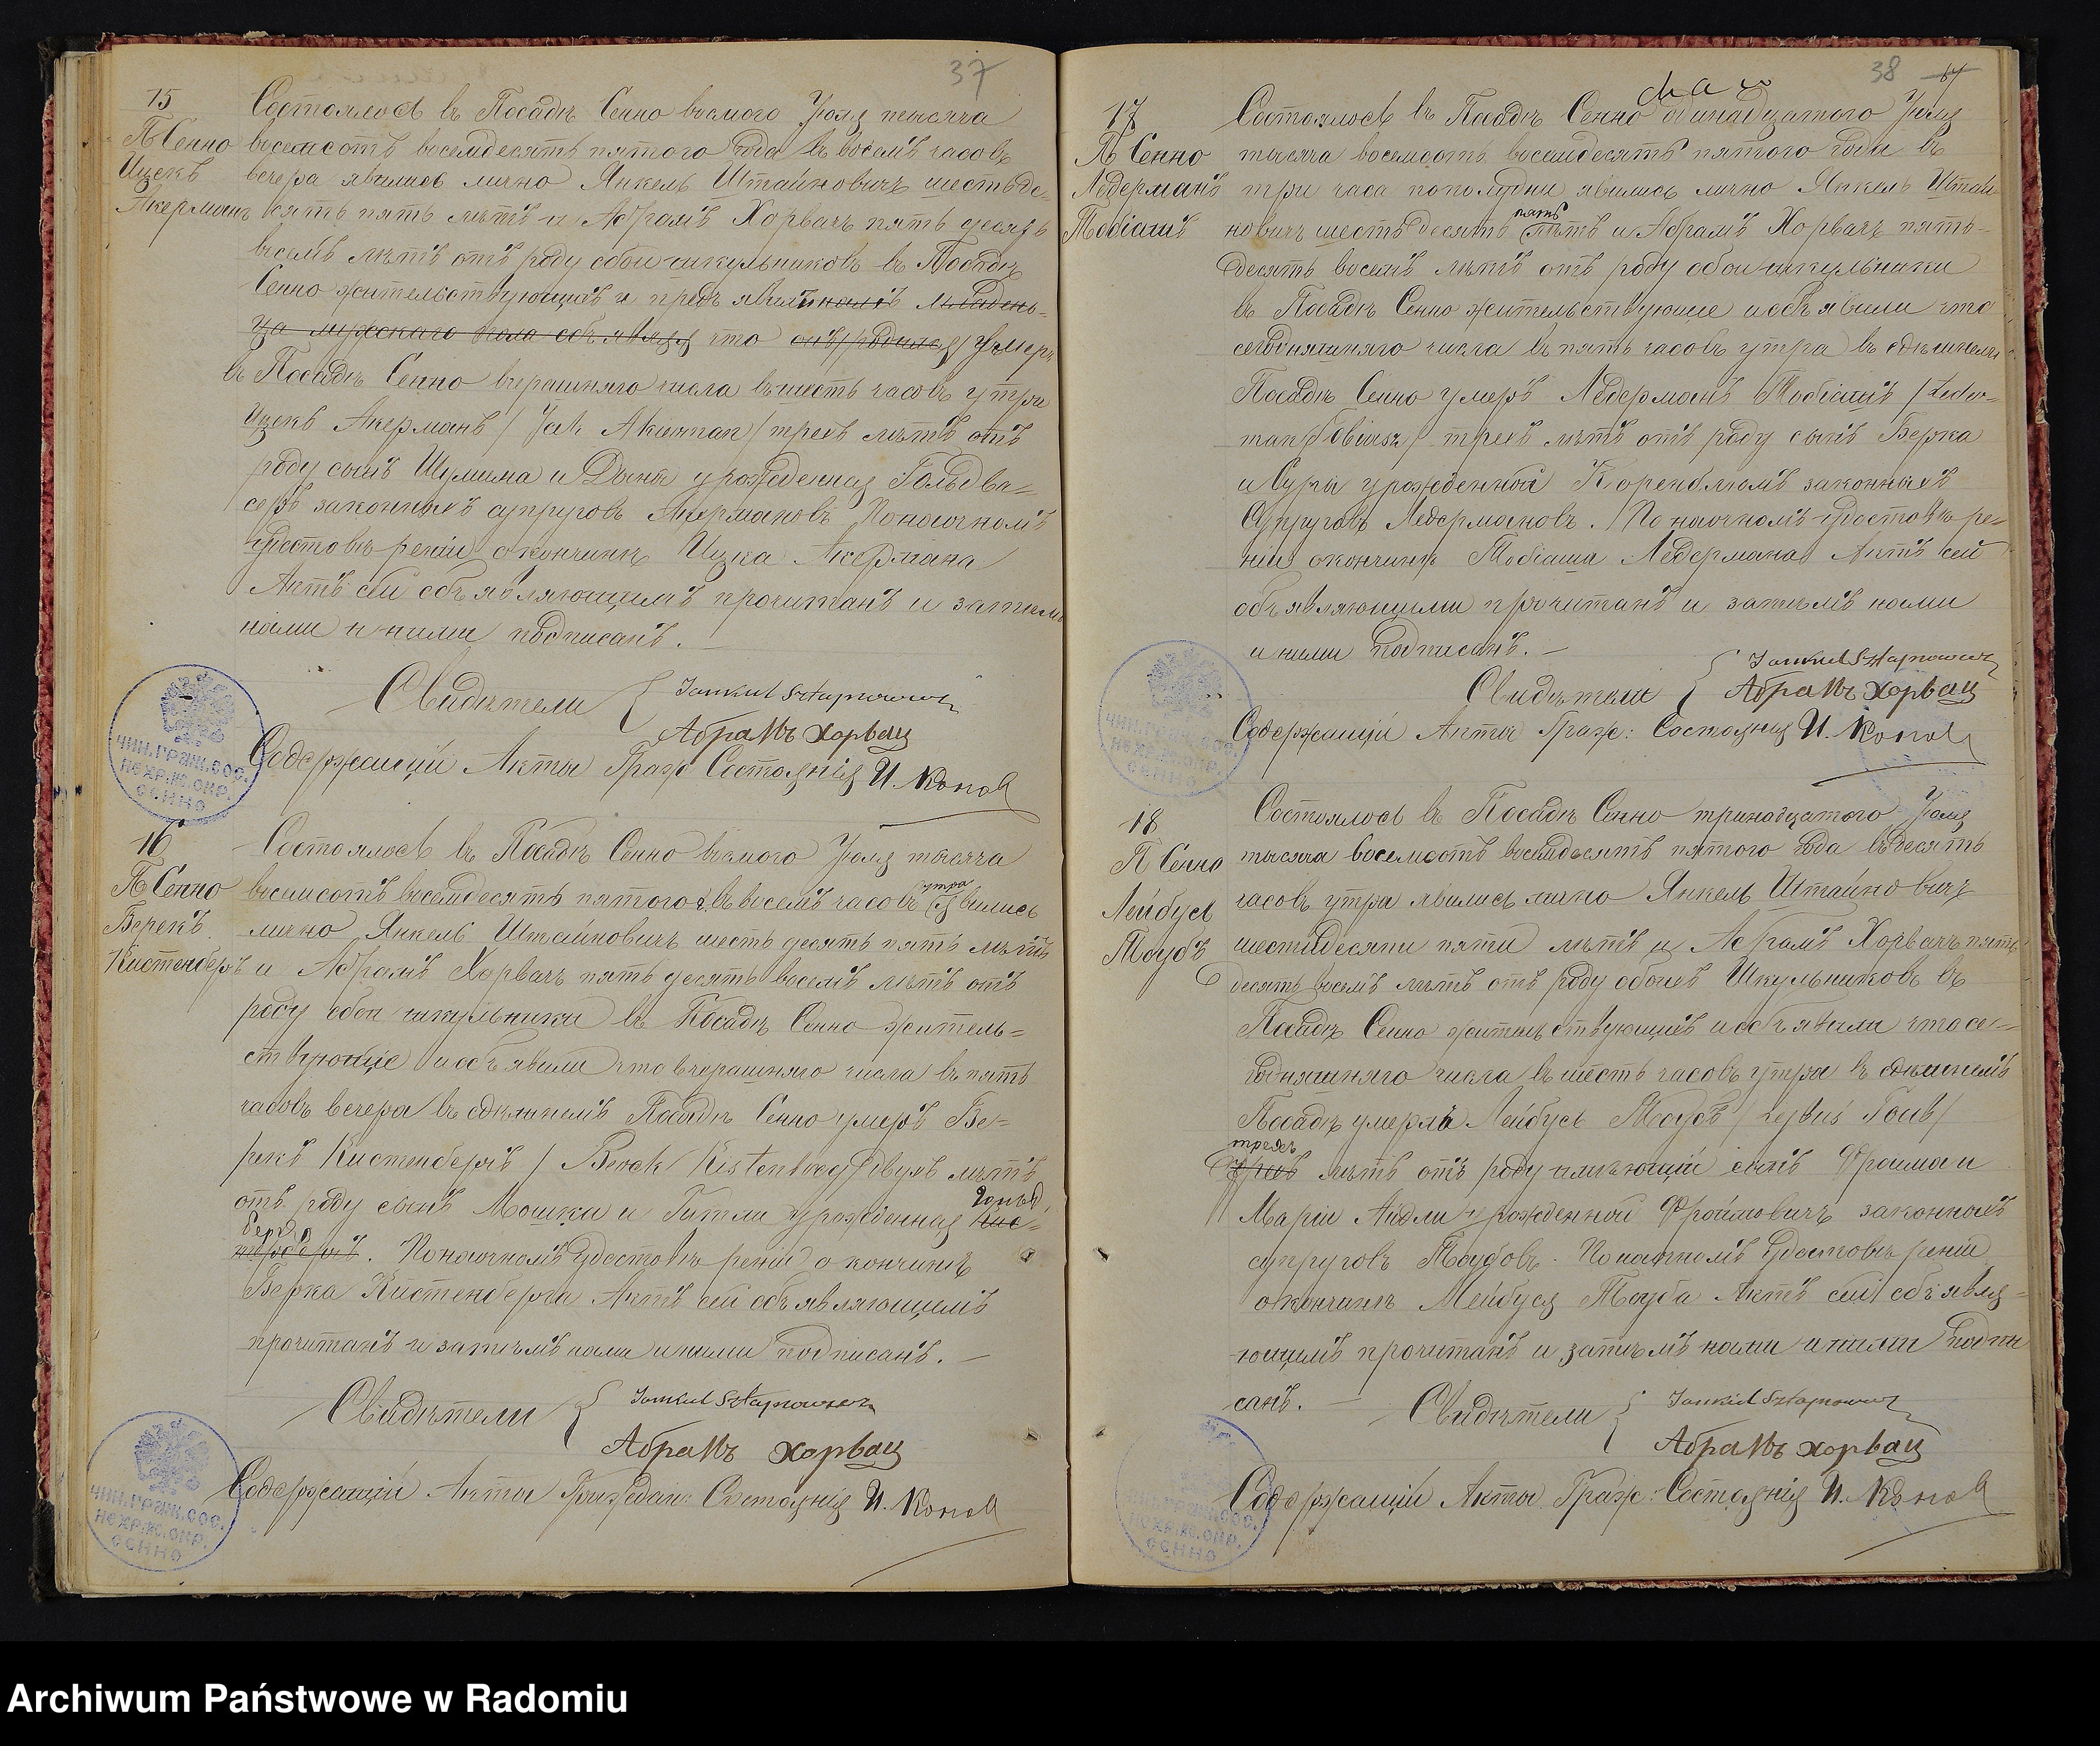 37
15
П Сенно
Ицекъ
Акерманъ
Состоялось въ Посадѣ Сенно восьмого Іюля тысяча
восемсотъ восемдесятъ пятого года въ восемь часовъ
вечера явились лично Янкель Штайновичъ шестьде-
сятъ пять лѣтъ и Абрамъ Хорвачъ пять десятъ
восемь лѣтъ отъ роду обои школьниковъ въ Посадѣ
Сенно жительствующихъ и предъявили намъ младен-
ца мужскаго пола объявляя что онъ родился умеръ
въ Посадѣ Сенно вчерашняго числа въ шесть часовъ утра
Ицекъ Акерманъ / Icek Akierman / трехъ лѣтъ отъ
роду сынъ Шулима и урожденная Гольдва-
серъ законныхъ супруговъ Акермановъ По наочномъ
удостовѣреніи о кончинѣ Ицка Акермана
Актъ сей объявляющимъ прочитанъ и затѣмъ
нами и ними подписанъ. —
Свидѣтели { Jankiel Sztajnowicz
Абрамъ Хорвац
Содержащій Акты Граж Состоянія И.
ЧИН. ГРАЖ. СОС.
НЕХР. Ж. ОКР.
СЕННО
16
П Сенно
Берекъ
Кистенберъ
Состоялось въ Посадѣ Сенно восьмого Іюля тысяча
восемсотъ восемдесятъ пятого г. въ восемь часовъ утра явились
лично Янкель Штайновичъ шесть десятъ пять лѣтъ
и Абрамъ Хорвачъ пять десятъ восемь лѣтъ отъ
роду обои школьники въ Посадѣ Сенно житель-
ствующіе и объявили что вчерашняго числа въ пять
часовъ вечера въ здѣшнемъ Посадѣ Сенно умеръ Бе-
рекъ Кистенберъ / Berek Kistenberg / двухъ лѣтъ
отъ роду сынъ Мошки и Гитли урожденная Гольд
берга. По наочномъ удостовѣреніи о кончинѣ
Берка Кистенберга Актъ сей объявляющимъ
прочитанъ и затѣмъ нами и ними подписанъ. —
Свидѣтели { Jankiel Sztajnowicz
Абрамъ Хорвац
Содержащій Акты Граждан: Состоянія И.
ЧИН. ГРАЖ. СОС.
НЕХР. Ж. ОКР.
СЕННО
38
17
П Сенно
Ледерманъ
Тобіашъ
Состоялось въ Посадѣ Сенно одинадцатого Іюля
тысяча восемсотъ восемдесятъ пятого года въ
три часа пополудни явились лично Янкель Штай
новичъ шестьдесятъ пять лѣтъ и Абрамъ Хорвачъ пять-
десятъ восемь лѣтъ отъ роду обои школьники
въ Посадѣ Сенно жительствующіе и объявили что
сегоднящняго числа въ пять часовъ утра въ здѣшнемъ
Посадѣ Сенно умеръ Ледерманъ Тобіашъ / Leder-
man Tobiasz / трехъ лѣтъ отъ роду сынъ Берка
и Суры урожденной Коренблюмъ законныхъ
Супруговъ Ледермановъ. По наочномъ удостовѣре-
ніи о кончинѣ Тобіаша Ледермана Актъ сей
объявляющими прочитанъ и затѣмъ нами
и ними подписанъ. —
Свидѣтели { Jankiel Sztajnowicz
Абрамъ Хорвац
Содержащій Акты Граж: Состоянія И.
ЧИН. ГРАЖ. СОС.
НЕХР. Ж. ОКР.
СЕННО
18
П Сенно
Лейбусь
Таубъ
Состоялось въ Посадѣ Сенно тринадцатого Іюля
тысяча восемсотъ восемдесятъ пятого года въ десять
часовъ утра явились лично Янкель Штайновичъ
шестидесяти пяти лѣтъ и Абрамъ Хорвачъ пять
десятъ восемь лѣтъ отъ роду обоихъ Школьниковъ въ
Посадѣ Сенно жительствующихъ и объявили что се-
годняшняго числа въ шесть часовъ утра въ здѣшнемъ
Посадѣ умеръ Лейбусь Таубъ / Lejbuś Toub /
трехъ лѣтъ отъ роду имѣющій сынъ Фроима и
Маріи урожденной Фроимовичъ законныхъ
супруговъ Таубовъ. По наочномъ удостовѣреніи
о кончинѣ Лейбуся Тауба Актъ сей объявля-
ющимъ прочитанъ и затѣмъ нами и ними подпи
санъ. — Свидѣтели { Jankiel Sztajnowicz
Абрамъ Хорвац
Содержащій Акты Граж: Состоянія И.
ЧИН. ГРАЖ. СОС.
НЕХР. Ж. ОКР.
СЕННО
Archiwum Państwowe w Radomiu